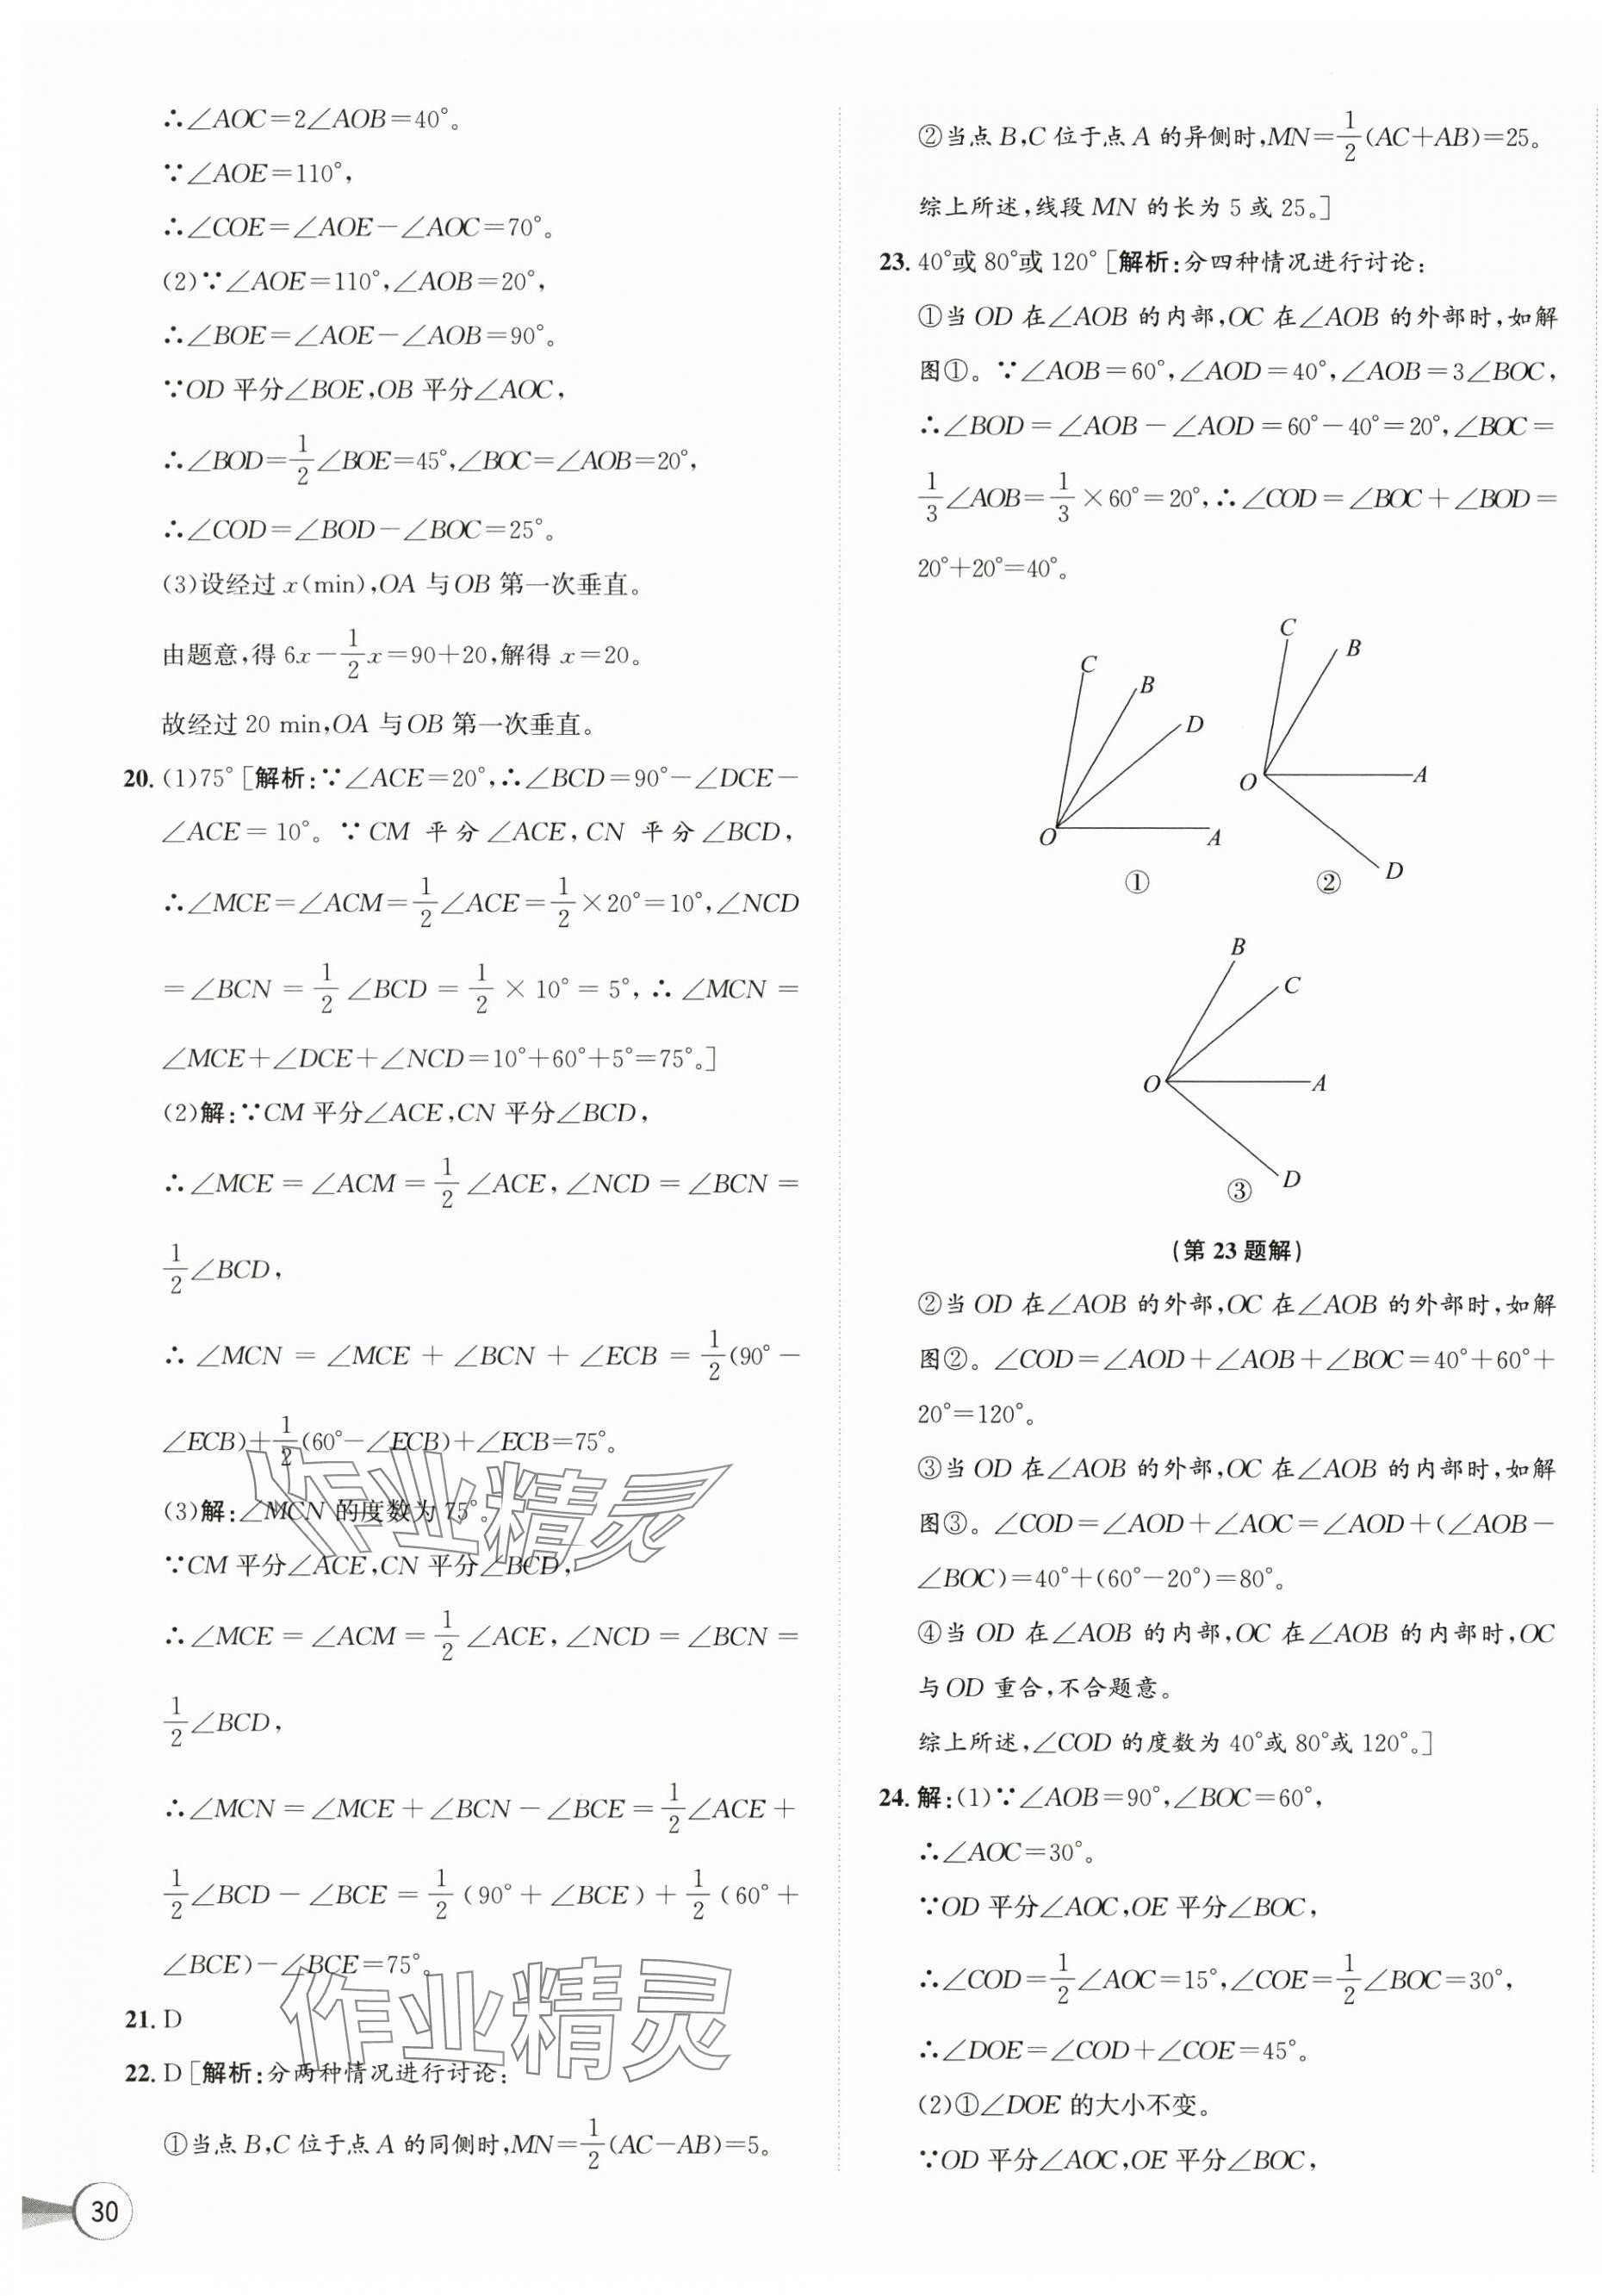 ∴∠AOC=2∠AOB=40°。
∵∠AOE=110°,
∴∠COE=∠AOE-∠AOC=70°。
(2)∵∠AOE=110°,∠AOB=20°,
∴∠BOE=∠AOE-∠AOB=90°。
∵OD 平分∠BOE,OB 平分∠AOC,
∴∠BOD=1/2∠BOE=45°,∠BOC=∠AOB=20°,
∴∠COD=∠BOD-∠BOC=25°。
(3)设经过 x(min),OA 与OB 第一次垂直。
由题意,得 6x-1/2x=90+20,解得 x=20。
故经过 20 min,OA 与OB 第一次垂直。
20. (1)75° [解析:∵∠ACE=20°,∴∠BCD=90°-∠DCE-
∠ACE=10°。∵CM 平分∠ACE,CN 平分∠BCD,
∴∠MCE=∠ACM=1/2∠ACE=1/2×20°=10°,∠NCD
=∠BCN=1/2∠BCD=1/2×10°=5°,∴∠MCN=
∠MCE+∠DCE+∠NCD=10°+60°+5°=75°。]
(2)解:∵CM 平分∠ACE,CN 平分∠BCD,
∴∠MCE=∠ACM=1/2∠ACE,∠NCD=∠BCN=
1/2∠BCD,
∴∠MCN=∠MCE+∠BCN+∠ECB=1/2(90°-
∠ECB)+1/2(60°-∠ECB)+∠ECB=75°。
(3)解:∠MCN 的度数为 75°。
∵CM 平分∠ACE,CN 平分∠BCD,
∴∠MCE=∠ACM=1/2∠ACE,∠NCD=∠BCN=
1/2∠BCD,
∴∠MCN=∠MCE+∠BCN-∠BCE=1/2∠ACE+
1/2∠BCD-∠BCE=1/2(90°+∠BCE)+1/2(60°+
∠BCE)-∠BCE=75°。
21. D
22. D [解析:分两种情况进行讨论:
①当点 B,C 位于点 A 的同侧时,MN=1/2(AC-AB)=5。
30
作业精灵
作业精灵
②当点 B,C 位于点 A 的异侧时,MN=1/2(AC+AB)=25。
综上所述,线段 MN 的长为 5 或 25。]
23. 40°或 80°或 120° [解析:分四种情况进行讨论:
①当 OD 在∠AOB 的内部,OC 在∠AOB 的外部时,如解
图①。∵∠AOB=60°,∠AOD=40°,∠AOB=3∠BOC,
∴∠BOD=∠AOB-∠AOD=60°-40°=20°,∠BOC=
1/3∠AOB=1/3×60°=20°,∴∠COD=∠BOC+∠BOD=
20°+20°=40°。
C
B
D
O
A
①
C
B
O
A
D
②
B
C
O
A
D
③
(第 23 题解)
②当 OD 在∠AOB 的外部,OC 在∠AOB 的外部时,如解
图②。∠COD=∠AOD+∠AOB+∠BOC=40°+60°+
20°=120°。
③当 OD 在∠AOB 的外部,OC 在∠AOB 的内部时,如解
图③。∠COD=∠AOD+∠AOC=∠AOD+(∠AOB-
∠BOC)=40°+(60°-20°)=80°。
④当 OD 在∠AOB 的内部,OC 在∠AOB 的内部时,OC
与OD 重合,不合题意。
综上所述,∠COD 的度数为 40°或 80°或 120°。]
24. 解:(1)∵∠AOB=90°,∠BOC=60°,
∴∠AOC=30°。
∵OD 平分∠AOC,OE 平分∠BOC,
∴∠COD=1/2∠AOC=15°,∠COE=1/2∠BOC=30°,
∴∠DOE=∠COD+∠COE=45°。
(2)①∠DOE 的大小不变。
∵OD 平分∠AOC,OE 平分∠BOC,